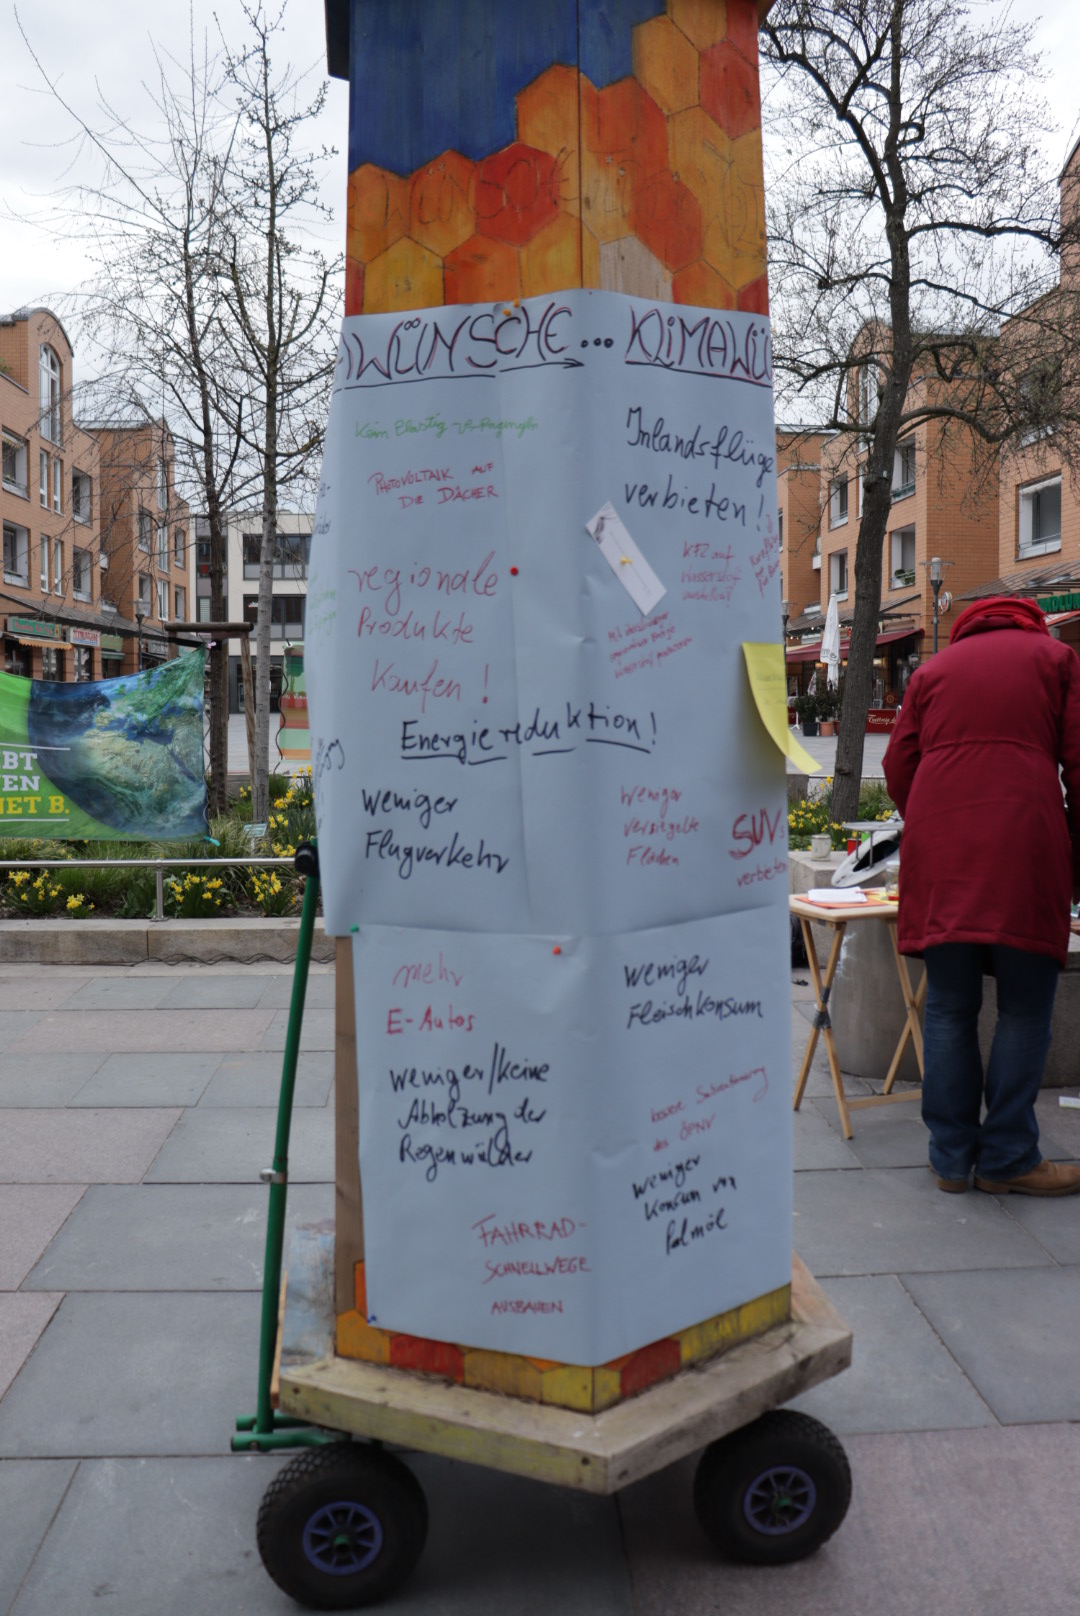 WÜNSCHE... KLIMAWÜ
PHOTOVOLTAIK AUF
DIE DÄCHER
regionale
Produkte
Kaufen !
Energiereduktion!
Weniger
Flugverkehr
Inlandsflüge
verbieten!
KFZ auf
Wasserstoff
Weniger
versiegelte
Flächen
SUVs
verbieten
mehr
E-Autos
Weniger/keine
Abholzung der
Regenwälder
FAHRRAD-
SCHNELLWEGE
AUSBAUEN
Weniger
Fleischkonsum
des ÖPNV
Weniger
Konsum von
Palmöl
BT
EN
NET B.